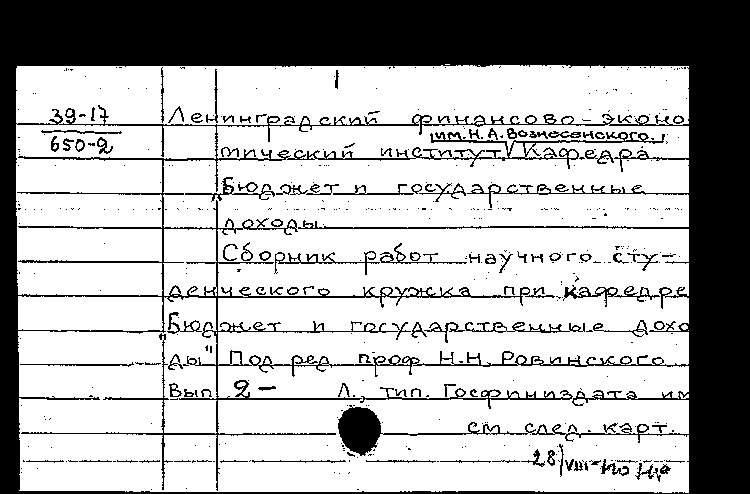 39-17
650-2
Ленинградский финансово-эконо
им. Н.А. Вознесенского.
мический институт, Кафедра
„Бюджет и государственные
доходы.
Сборник работ научного сту-
денческого кружка при кафедре
„Бюджет и государственные дохо
ды" Под ред проф Н.Н. Ровинского
Вып 2- Л., тип. Госфиниздата им
см. след. карт.
28/VIII-